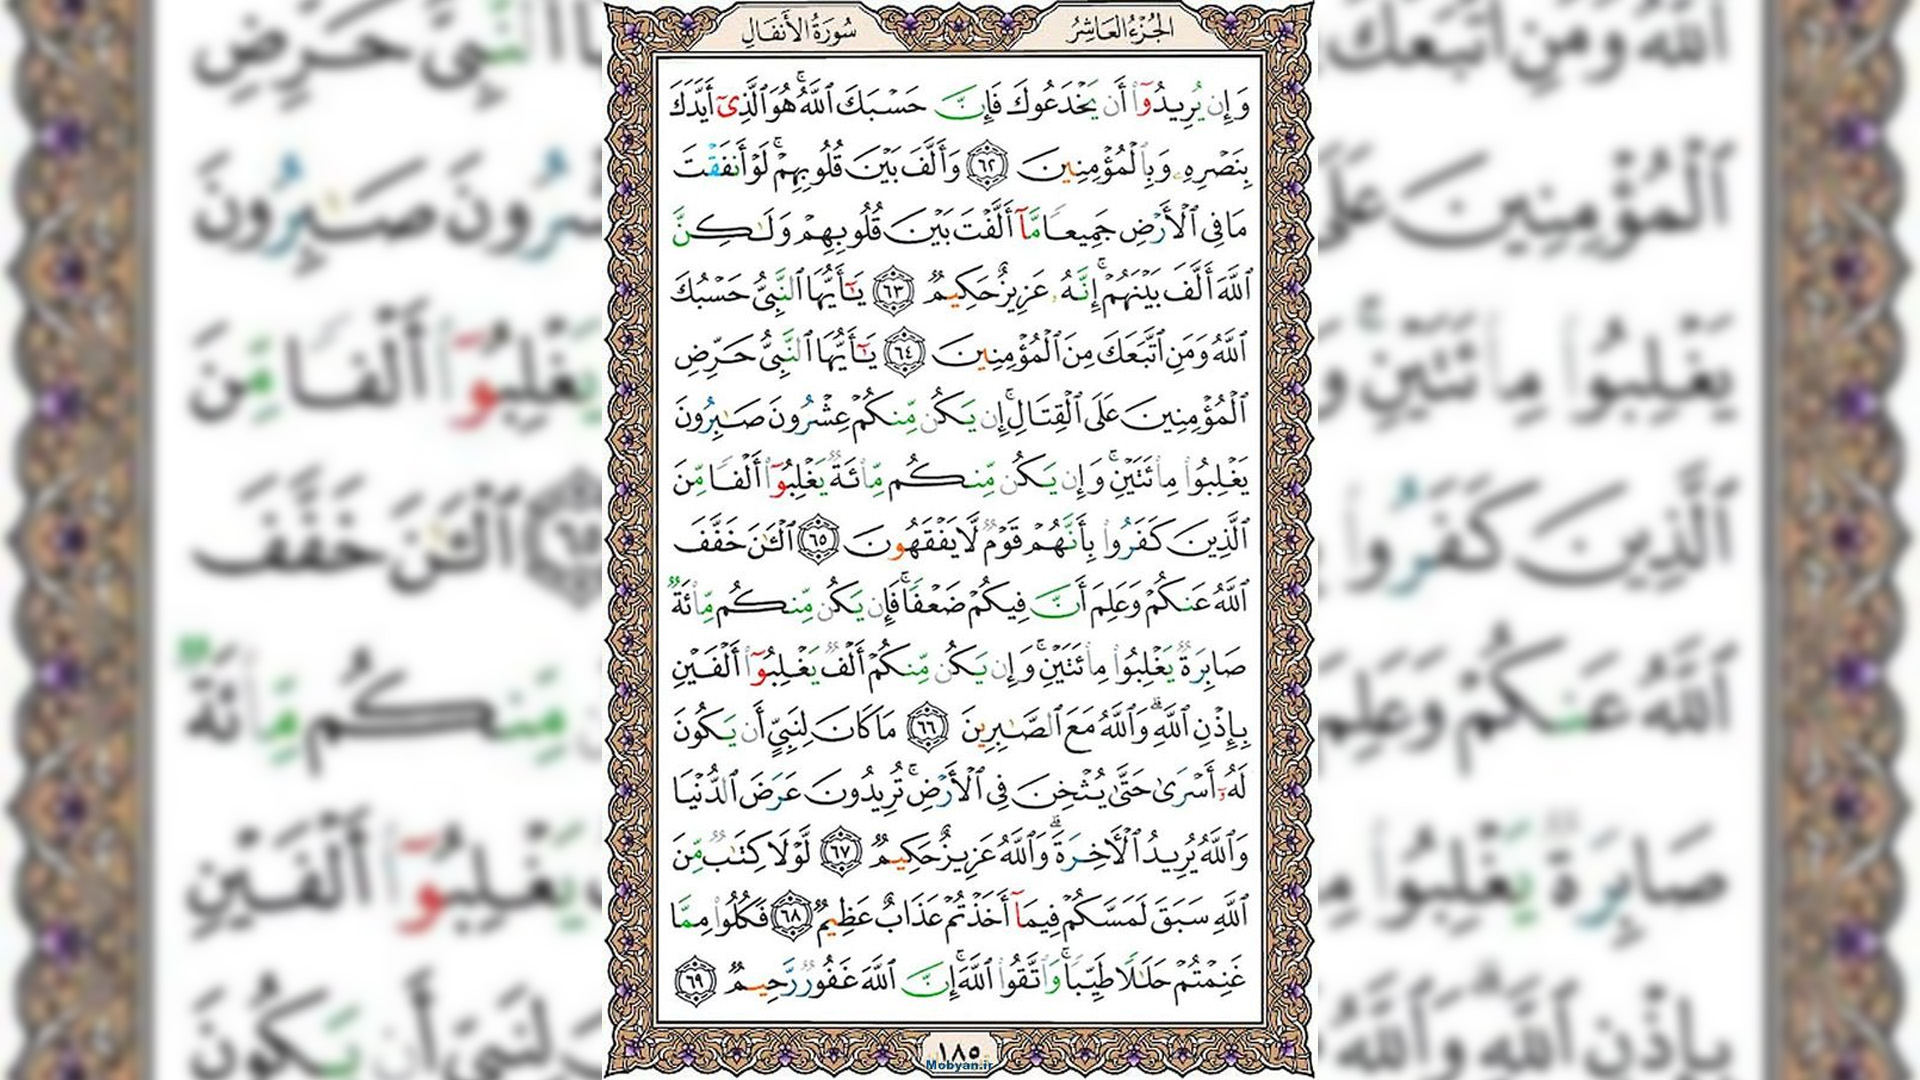 الجزء العاشر
سورة الأنفال
وَإِن يُرِيدُوٓا۟ أَن يَخْدَعُوكَ فَإِنَّ حَسْبَكَ ٱللَّهُ ۚ هُوَ ٱلَّذِىٓ أَيَّدَكَ
بِنَصْرِهِۦ وَبِٱلْمُؤْمِنِينَ ٦٢ وَأَلَّفَ بَيْنَ قُلُوبِهِمْ ۚ لَوْ أَنفَقْتَ
مَا فِى ٱلْأَرْضِ جَمِيعًا مَّآ أَلَّفْتَ بَيْنَ قُلُوبِهِمْ وَلَـٰكِنَّ
ٱللَّهَ أَلَّفَ بَيْنَهُمْ ۚ إِنَّهُۥ عَزِيزٌ حَكِيمٌ ٦٣ يَـٰٓأَيُّهَا ٱلنَّبِىُّ حَسْبُكَ
ٱللَّهُ وَمَنِ ٱتَّبَعَكَ مِنَ ٱلْمُؤْمِنِينَ ٦٤ يَـٰٓأَيُّهَا ٱلنَّبِىُّ حَرِّضِ
ٱلْمُؤْمِنِينَ عَلَى ٱلْقِتَالِ ۚ إِن يَكُن مِّنكُمْ عِشْرُونَ صَـٰبِرُونَ
يَغْلِبُوا۟ مِا۟ئَتَيْنِ ۚ وَإِن يَكُن مِّنكُم مِّا۟ئَةٌ يَغْلِبُوٓا۟ أَلْفًا مِّنَ
ٱلَّذِينَ كَفَرُوا۟ بِأَنَّهُمْ قَوْمٌ لَّا يَفْقَهُونَ ٦٥ ٱلْـَٔـٰنَ خَفَّفَ
ٱللَّهُ عَنكُمْ وَعَلِمَ أَنَّ فِيكُمْ ضَعْفًا ۚ فَإِن يَكُن مِّنكُم مِّا۟ئَةٌ
صَابِرَةٌ يَغْلِبُوا۟ مِا۟ئَتَيْنِ ۚ وَإِن يَكُن مِّنكُمْ أَلْفٌ يَغْلِبُوٓا۟ أَلْفَيْنِ
بِإِذْنِ ٱللَّهِ ۗ وَٱللَّهُ مَعَ ٱلصَّـٰبِرِينَ ٦٦ مَا كَانَ لِنَبِىٍّ أَن يَكُونَ
لَهُۥٓ أَسْرَىٰ حَتَّىٰ يُثْخِنَ فِى ٱلْأَرْضِ ۚ تُرِيدُونَ عَرَضَ ٱلدُّنْيَا
وَٱللَّهُ يُرِيدُ ٱلْـَٔاخِرَةَ ۗ وَٱللَّهُ عَزِيزٌ حَكِيمٌ ٦٧ لَّوْلَا كِتَـٰبٌ مِّنَ
ٱللَّهِ سَبَقَ لَمَسَّكُمْ فِيمَآ أَخَذْتُمْ عَذَابٌ عَظِيمٌ ٦٨ فَكُلُوا۟ مِمَّا
غَنِمْتُمْ حَلَـٰلًا طَيِّبًا ۚ وَٱتَّقُوا۟ ٱللَّهَ ۚ إِنَّ ٱللَّهَ غَفُورٌ رَّحِيمٌ ٦٩
١٨٥
Mobyan.ir